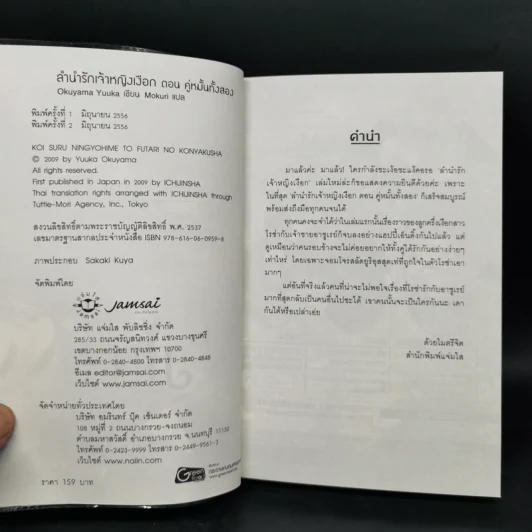 ลำนำรักเจ้าหญิงเงือก ตอน คู่หมั้นทั้งสอง
Okuyama Yuuka เขียน Mokuri แปล
พิมพ์ครั้งที่ 1 มิถุนายน 2556
พิมพ์ครั้งที่ 2 มิถุนายน 2556
KOI SURU NINGYOHIME TO FUTARI NO KONYAKUSHA
© 2009 by Yuuka Okuyama
All rights reserved.
First published in Japan in 2009 by ICHIJINSHA
Thai translation rights arranged with ICHIJINSHA through
Tuttle-Mori Agency, Inc., Tokyo
สงวนลิขสิทธิ์ตามพระราชบัญญัติลิขสิทธิ์ พ.ศ. 2537
เลขมาตรฐานสากลประจำหนังสือ ISBN 978-616-06-0959-8
ภาพประกอบ Sakaki Kuya
จัดพิมพ์โดย
jamsai
บริษัท แจ่มใส พับลิชชิ่ง จำกัด
285/33 ถนนจรัญสนิทวงศ์ แขวงบางขุนศรี
เขตบางกอกน้อย กรุงเทพฯ 10700
โทรศัพท์ 0-2840-4800 โทรสาร 0-2840-4848
อีเมล editor@jamsai.com
เว็บไซต์ www.jamsai.com
จัดจำหน่ายทั่วประเทศโดย
บริษัท อมรินทร์ บุ๊ค เซ็นเตอร์ จำกัด
108 หมู่ที่ 2 ถนนบางกรวย-จงถนอม
ตำบลมหาสวัสดิ์ อำเภอบางกรวย จ.นนทบุรี 11130
โทรศัพท์ 0-2423-9999 โทรสาร 0-2449-9561-3
เว็บไซต์ www.naiin.com
ราคา 159 บาท
Green
คำนำ
มาแล้วค่ะ มาแล้ว! ใครกำลังชะเง้อชะแง้คอรอ 'ลำนำรัก
เจ้าหญิงเงือก' เล่มใหม่ล่ะก็ขอแสดงความยินดีด้วยค่ะ เพราะ
ในที่สุด 'ลำนำรักเจ้าหญิงเงือก ตอน คู่หมั้นทั้งสอง' ก็เสร็จสมบูรณ์
พร้อมส่งถึงมือทุกคนจนได้
ทุกคนคงจะจำได้ว่าในเล่มแรกนั้นเรื่องราวของลูกครึ่งเงือกสาว
โรซ่ากับเจ้าชายอาซูเรย์ก็จบลงอย่างแฮปปี้เอ็นดิ้งกันไปแล้ว แต่
ดูเหมือนว่าคนรอบข้างจะไม่ค่อยอยากให้ทั้งคู่ได้รักกันอย่างง่ายๆ
เท่าไหร่ โดยเฉพาะจอมโจรสลัดยูริอุสสุดเท่ที่ถูกใจในตัวโรซ่าเอา
มากๆ
แต่อันที่จริงแล้วคนที่น่าจะไม่พอใจเรื่องที่โรซ่ารักกับอาซูเรย์
มากที่สุดกลับเป็นคนอื่นไปซะได้ เขาคนนั้นจะเป็นใครกันนะ เดา
กันได้หรือเปล่าเอ่ย
ด้วยไมตรีจิต
สำนักพิมพ์แจ่มใส